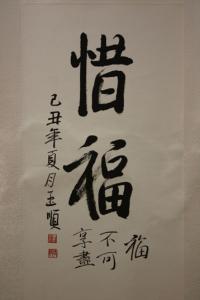 惜福
福不可享盡
己丑年夏月玉順